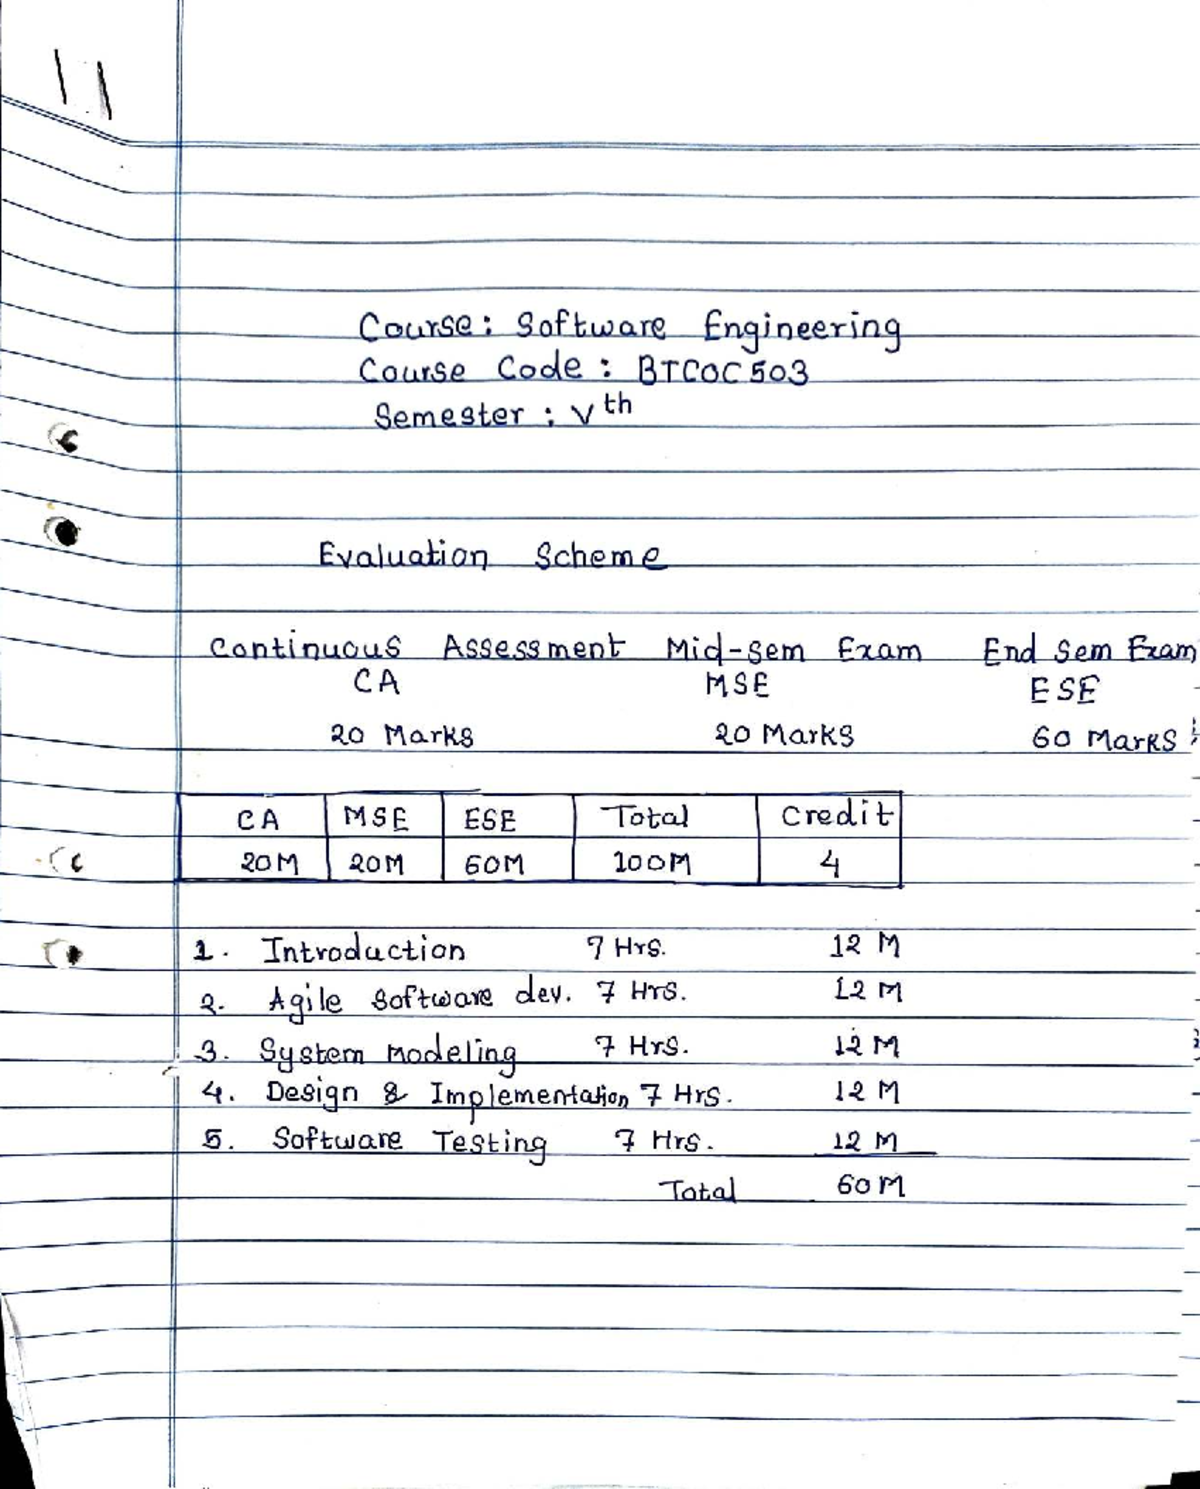 Course: Software Engineering
Course Code: BTCOC503
Semester: Vth
Evaluation Scheme
Continuous Assessment Mid-sem Exam End Sem Exam
CA MSE ESE
20 Marks 20 Marks 60 Marks
CA MSE ESE Total Credit
20M 20M 60M 100M 4
1. Introduction 7 Hrs. 12 M
2. Agile Software dev. 7 Hrs. 12 M
3. System modeling 7 Hrs. 12 M
4. Design & Implementation 7 Hrs. 12 M
5. Software Testing 7 Hrs. 12 M
Total 60M